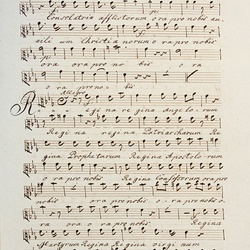 Consolatrix afflictorum ora pro nobis au
xili um Christia norum ora pro nobis
ora ora pro no bis o ra
o ra pro no bis
Allegro
Regi na re gina Ange lo rum
Regi na regina Patriarcharum Re
gina Prophetarum Regina Aposto lo rum
o ra pro nobis Regina Confessorum ora pro
nobis ora pro nobis o ra pro nobis
o ra ora o ra pro nobis Regina
Martyrum Regina Regina virgi num